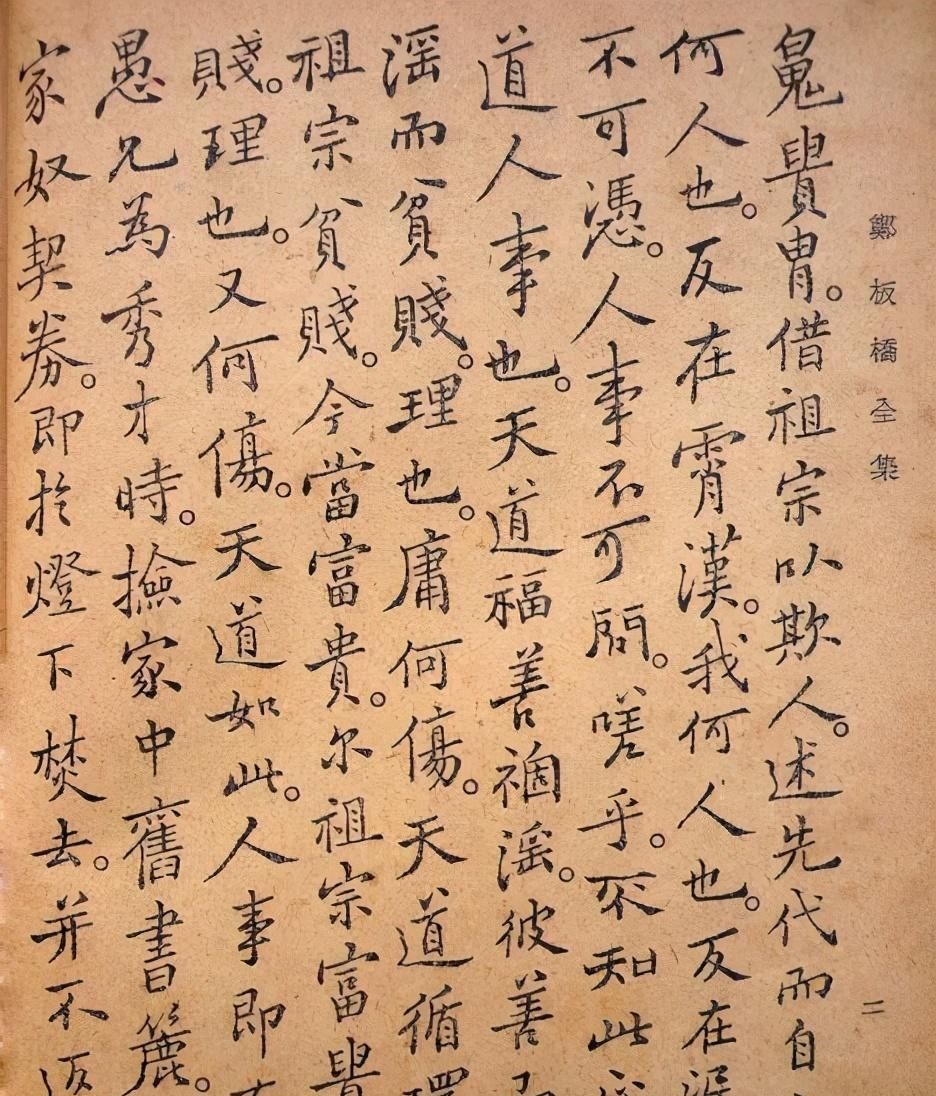 鄭板橋全集
二
魄貴胄。借祖宗以欺人。述先代而自
何人也。反在霄漢。我何人也。反在泥
不可憑。人事不可問。嗟乎。不知此
道人事也。天道福善禍淫。彼善
淫而貧賤。理也。庸何傷。天道循環
祖宗貧賤。今當富貴。尔祖宗富貴
賤。理也。又何傷。天道如此。人事即
愚兄為秀才時。撿家中舊書簏。
家奴契券。即於燈下焚去。并不返